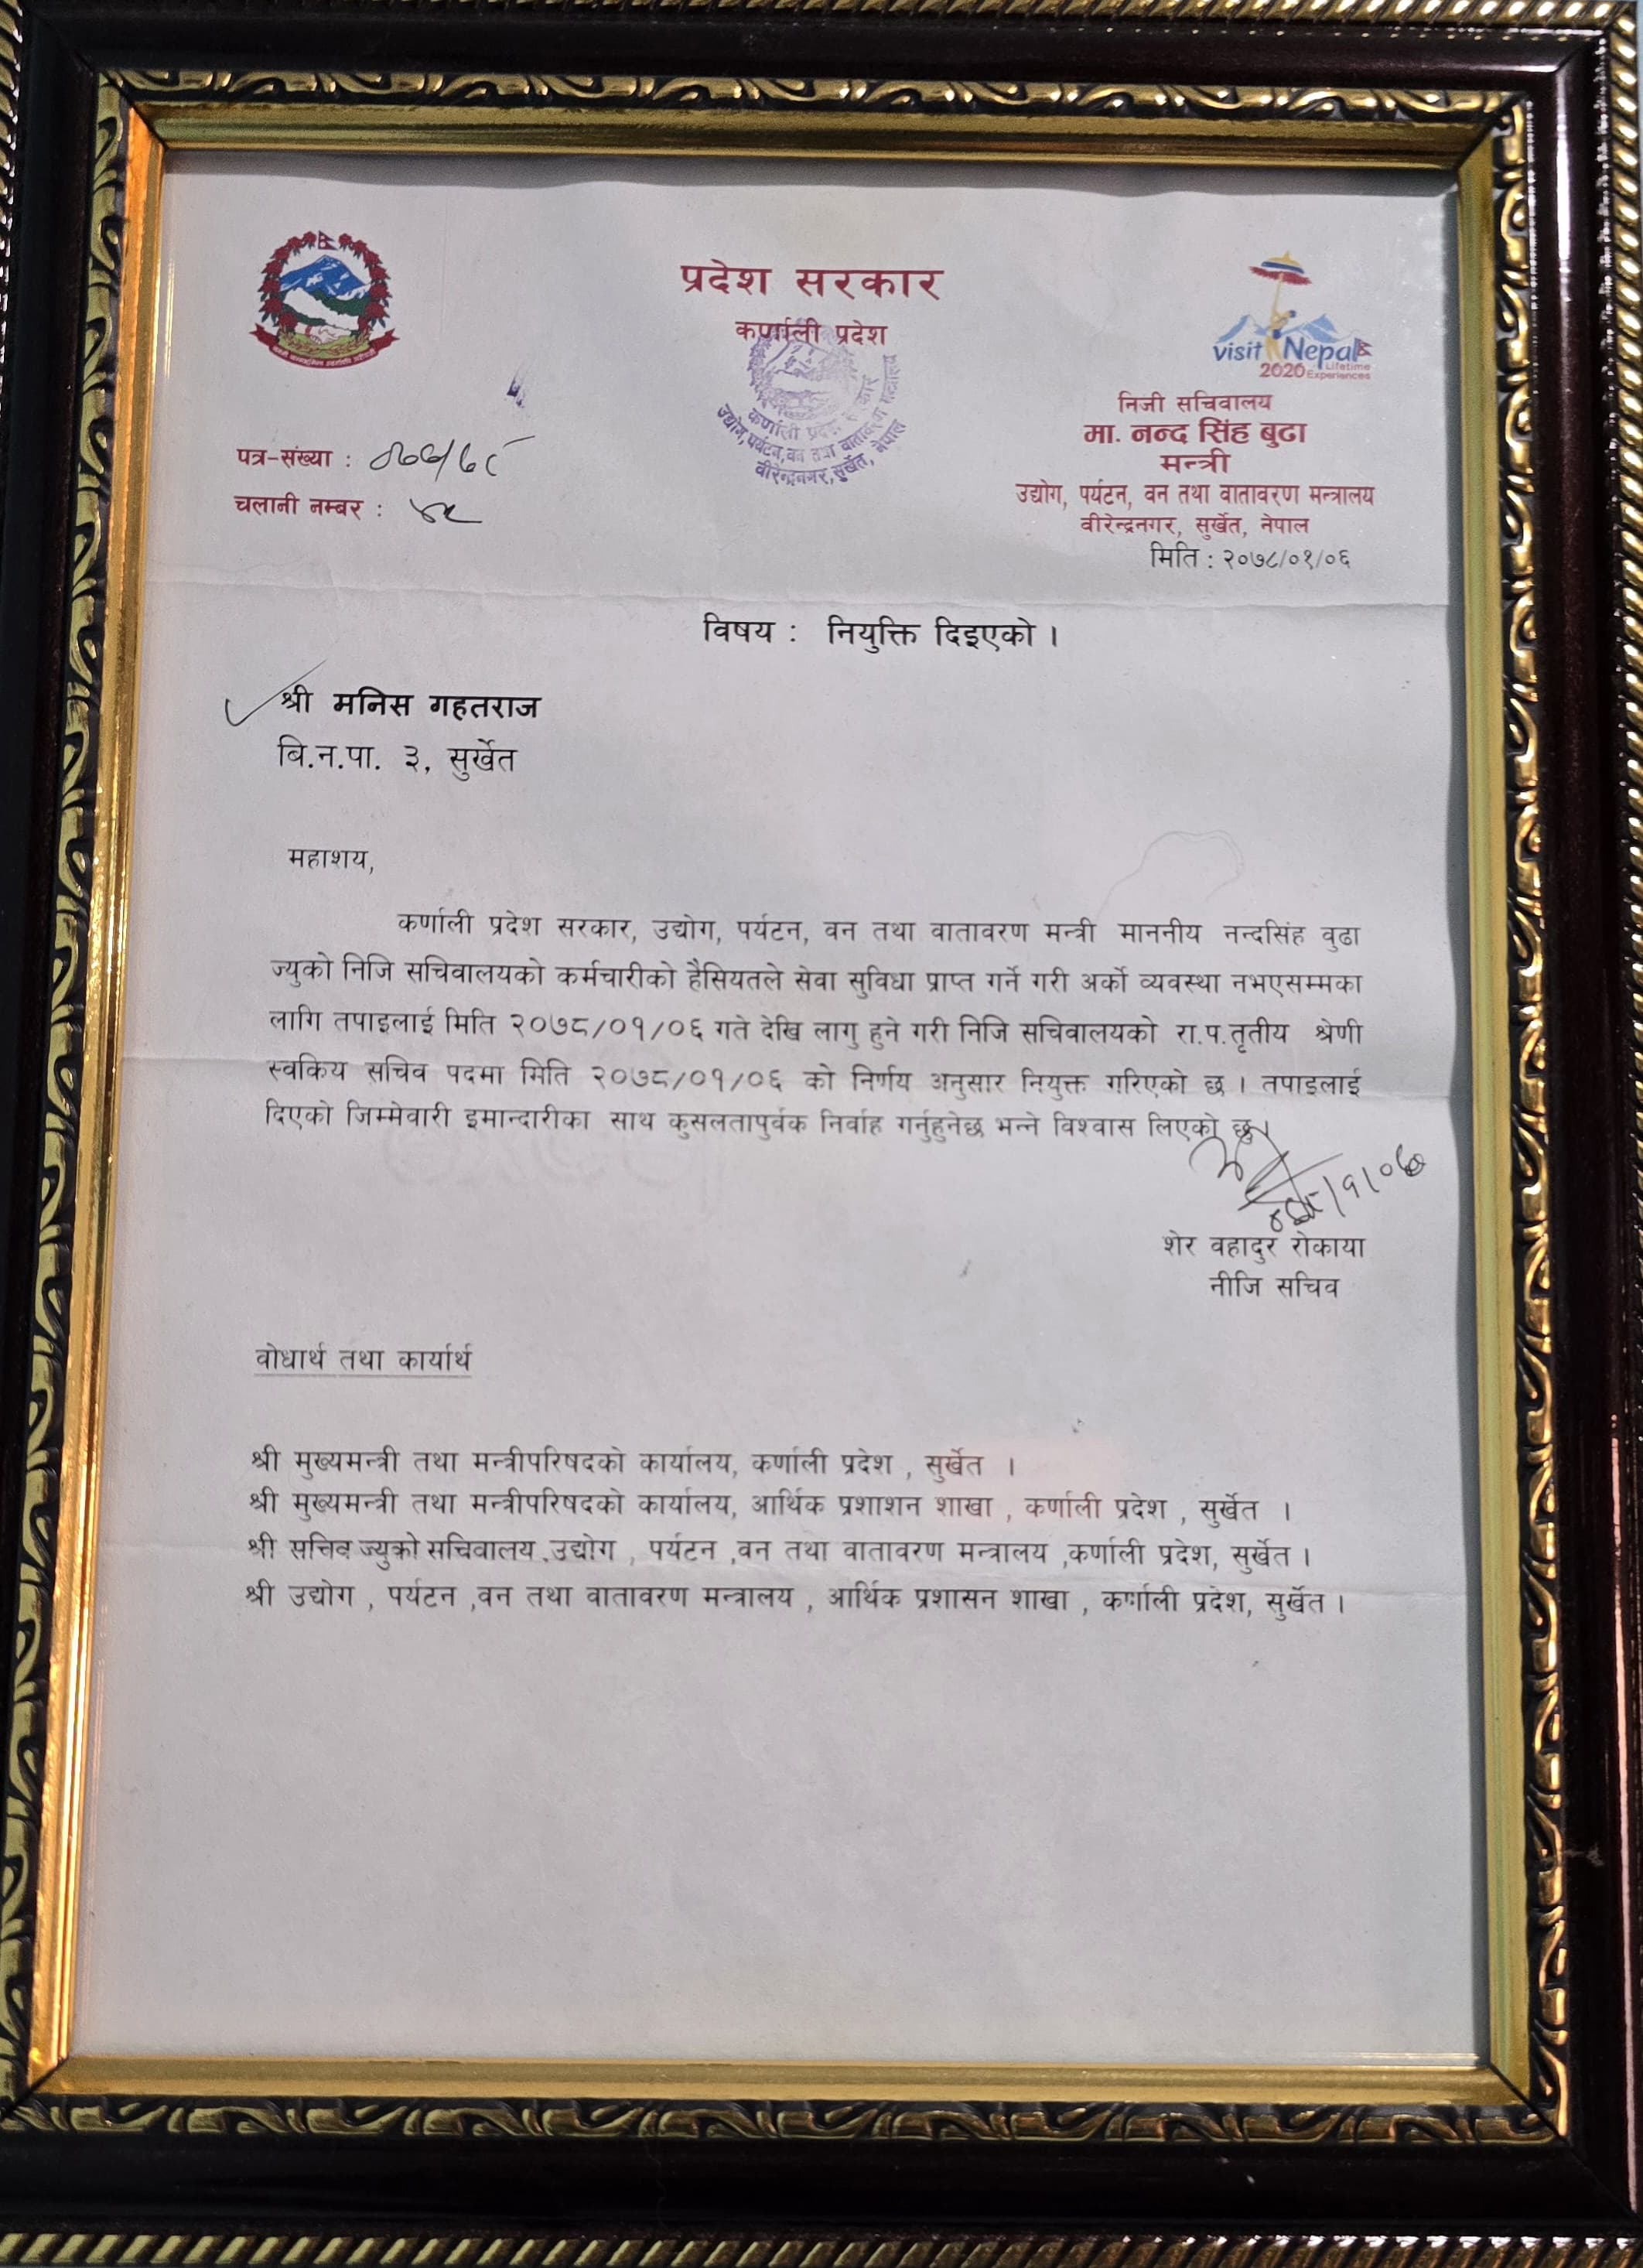 प्रदेश सरकार
कर्णाली प्रदेश
visit Nepal
2020 Lifetime Experiences
कर्णाली प्रदेश
उद्योग, पर्यटन, वन तथा वातावरण
वीरेन्द्रनगर, सुर्खेत, नेपाल
निजी सचिवालय
मा. नन्द सिंह बुढा
मन्त्री
उद्योग, पर्यटन, वन तथा वातावरण मन्त्रालय
वीरेन्द्रनगर, सुर्खेत, नेपाल
मिति : २०७८/०१/०६
पत्र-संख्या : ०७७/७८
चलानी नम्बर :
विषय : नियुक्ति दिइएको ।
श्री मनिस गहतराज
बि.न.पा. ३, सुर्खेत
महाशय,
कर्णाली प्रदेश सरकार, उद्योग, पर्यटन, वन तथा वातावरण मन्त्री माननीय नन्दसिंह वुढा
ज्युको निजि सचिवालयको कर्मचारीको हैसियतले सेवा सुविधा प्राप्त गर्ने गरी अर्को व्यवस्था नभएसम्मका
लागि तपाइलाई मिति २०७८/०१/०६ गते देखि लागु हुने गरी निजि सचिवालयको रा.प.तृतीय श्रेणी
स्वकिय सचिव पदमा मिति २०७८/०१/०६ को निर्णय अनुसार नियुक्त गरिएको छ । तपाइलाई
दिएको जिम्मेवारी इमान्दारीका साथ कुसलतापुर्वक निर्वाह गर्नुहुनेछ भन्ने विश्वास लिएको छु।
शेर वहादुर रोकाया
नीजि सचिव
वोधार्थ तथा कार्यार्थ
श्री मुख्यमन्त्री तथा मन्त्रीपरिषदको कार्यालय, कर्णाली प्रदेश , सुर्खेत ।
श्री मुख्यमन्त्री तथा मन्त्रीपरिषदको कार्यालय, आर्थिक प्रशाशन शाखा , कर्णाली प्रदेश , सुर्खेत ।
श्री सचिव ज्युको सचिवालय ,उद्योग , पर्यटन ,वन तथा वातावरण मन्त्रालय ,कर्णाली प्रदेश, सुर्खेत ।
श्री उद्योग , पर्यटन ,वन तथा वातावरण मन्त्रालय , आर्थिक प्रशासन शाखा , कर्णाली प्रदेश, सुर्खेत ।